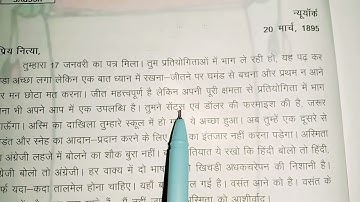 न्यूयॉर्क
20 मार्च, 1895
प्रिय नित्या,
तुम्हारा 17 जनवरी का पत्र मिला। तुम प्रतियोगिताओं में भाग ले रही हो, यह पढ़ कर
अच्छा लगा लेकिन एक बात ध्यान में रखना-जीतने पर घमंड से बचना और प्रथम न आने
पर मन छोटा मत करना। जीत महत्त्वपूर्ण है लेकिन अपनी पूरी क्षमता से प्रतियोगिता में भाग
लेना भी अपने आप में एक उपलब्धि है। तुमने सेट्स एवं डॉलर की फरमाइश की है, जरूर
अस्मि का दाखिला तुम्हारे स्कूल में हो गया ये अच्छा हुआ। अब तुम्हें एक दूसरे से
और स्नेह का आदान-प्रदान करने के लिए का इंतजार नहीं करना पड़ेगा। अस्मिता
अंग्रेजी लहजे में बोलने का शौक बुरा नहीं। रखे कि हिंदी बोलो तो हिंदी,
अंग्रेजी बोलो तो अंग्रेजी। हर वाक्य में दो भाषा खिचड़ी अधकचरेपन की निशानी है।
यदा-कदा तालमेल होना चाहिए। यहाँ गई है। वसंत आने को है। वसंत के
अस्मिता को आशीर्वाद।